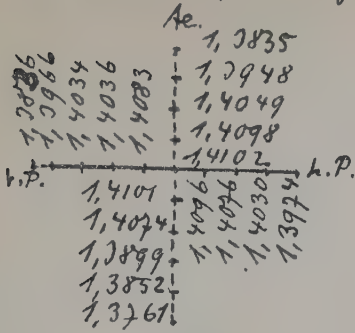 Ae.
1,3835
1,3948
1,4049
1,4098
1,4102
1,3966
1,4034
1,4036
1,4083
h.P.
1,4101
1,4074
1,3899
1,3852
1,3761
1,4096
1,4076
1,4030
1,3974